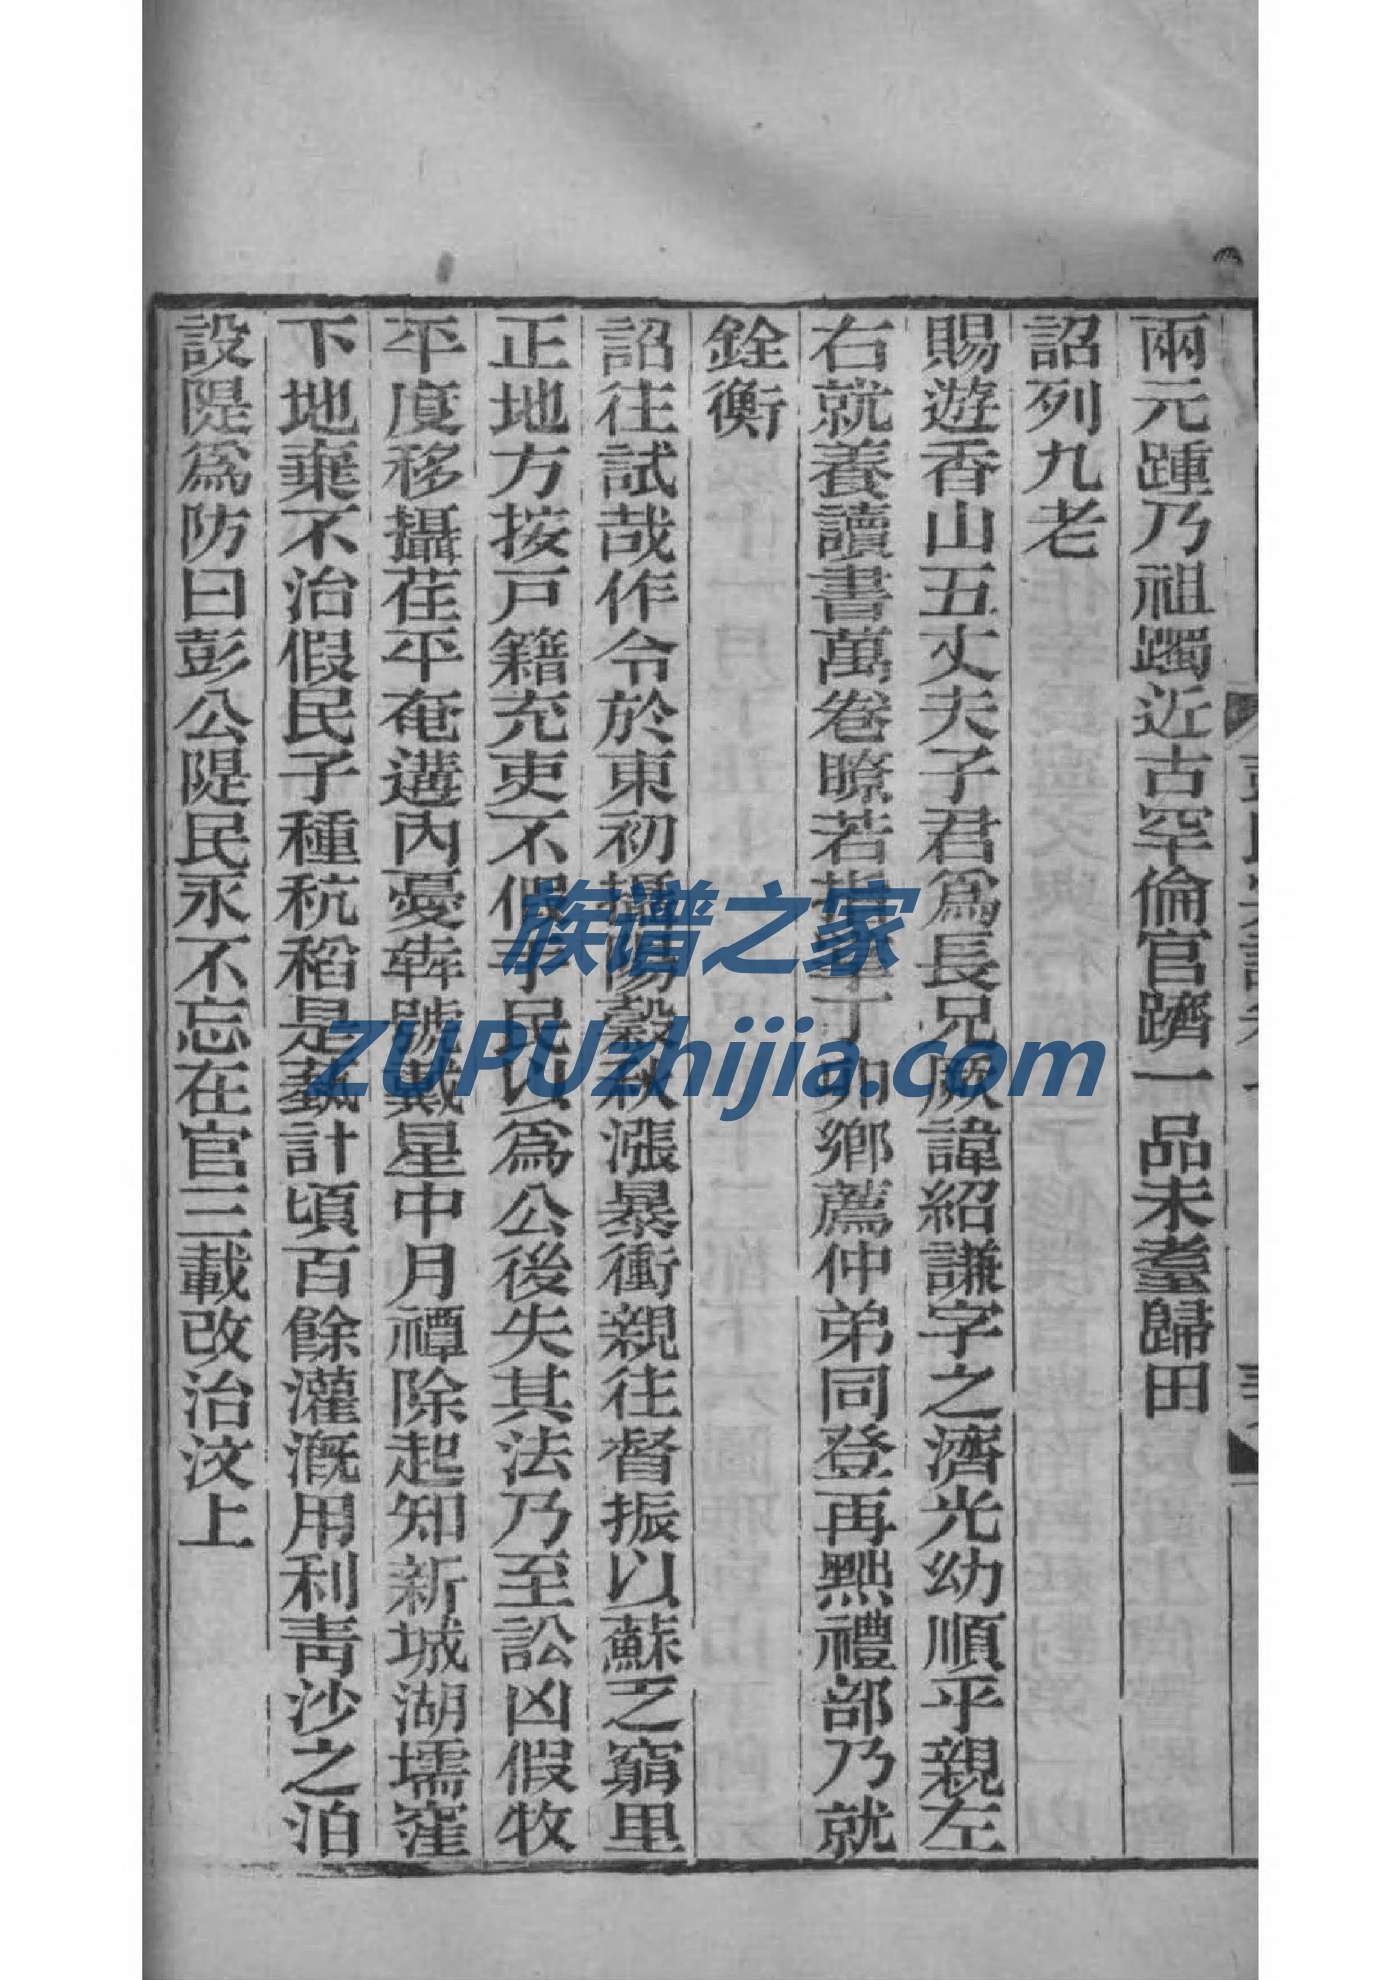 兩元踵乃祖躅近古罕倫官躋一品未耋歸田
詔列九老
賜遊香山五丈夫子君爲長兄厥諱紹謙字之濟光幼順乎親左
右就養讀書萬卷瞭若指掌丁卯鄉薦仲弟同登再黜禮部乃就
銓衡
詔往試哉作令於東初攝陽穀秋漲暴衝親往督振以蘇乏窮里
正地方按戶籍充吏不假手民以爲公後失其法乃至訟凶假牧
平度移攝茌平奄遘內憂犇號戴星中月禫除起知新城湖壖窪
下地棄不治假民子種秔稻是蓺計頃百餘灌溉用利靑沙之泊
設隄爲防曰彭公隄民永不忘在官三載改治汶上
族谱之家
ZUPUzhijia.com